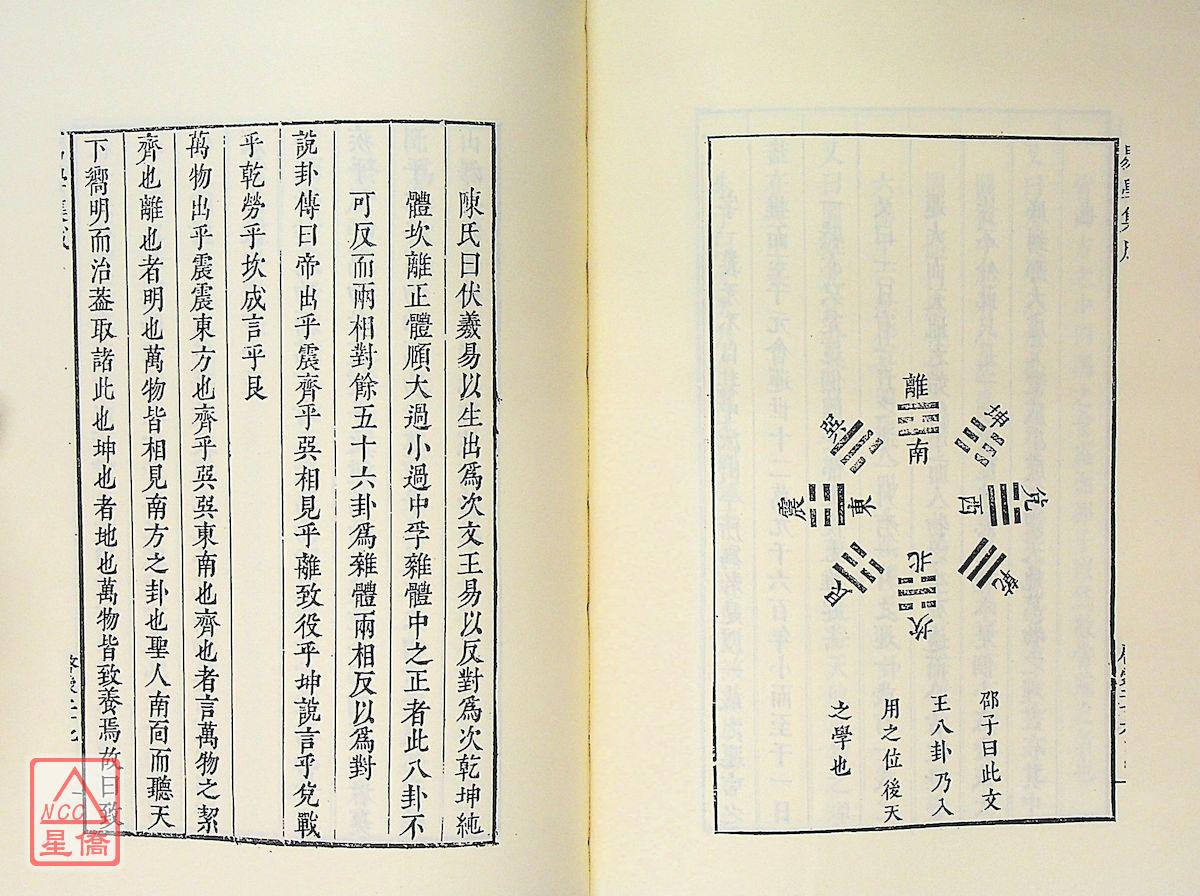 離
南
坤
兌
西
乾
坎
北
艮
震
東
巽
邵子曰此文
王八卦乃入
用之位後天
之學也
陳氏曰伏羲易以生出爲次文王易以反對爲次乾坤純
體坎離正體頤大過小過中孚雜體中之正者此八卦不
可反而兩相對餘五十六卦爲雜體兩相反以爲對
說卦傳曰帝出乎震齊乎巽相見乎離致役乎坤說言乎兌戰
乎乾勞乎坎成言乎艮
萬物出乎震震東方也齊乎巽巽東南也齊也者言萬物之絜
齊也離也者明也萬物皆相見南方之卦也聖人南面而聽天
下嚮明而治葢取諸此也坤也者地也萬物皆致養焉故曰致
NCC
星僑